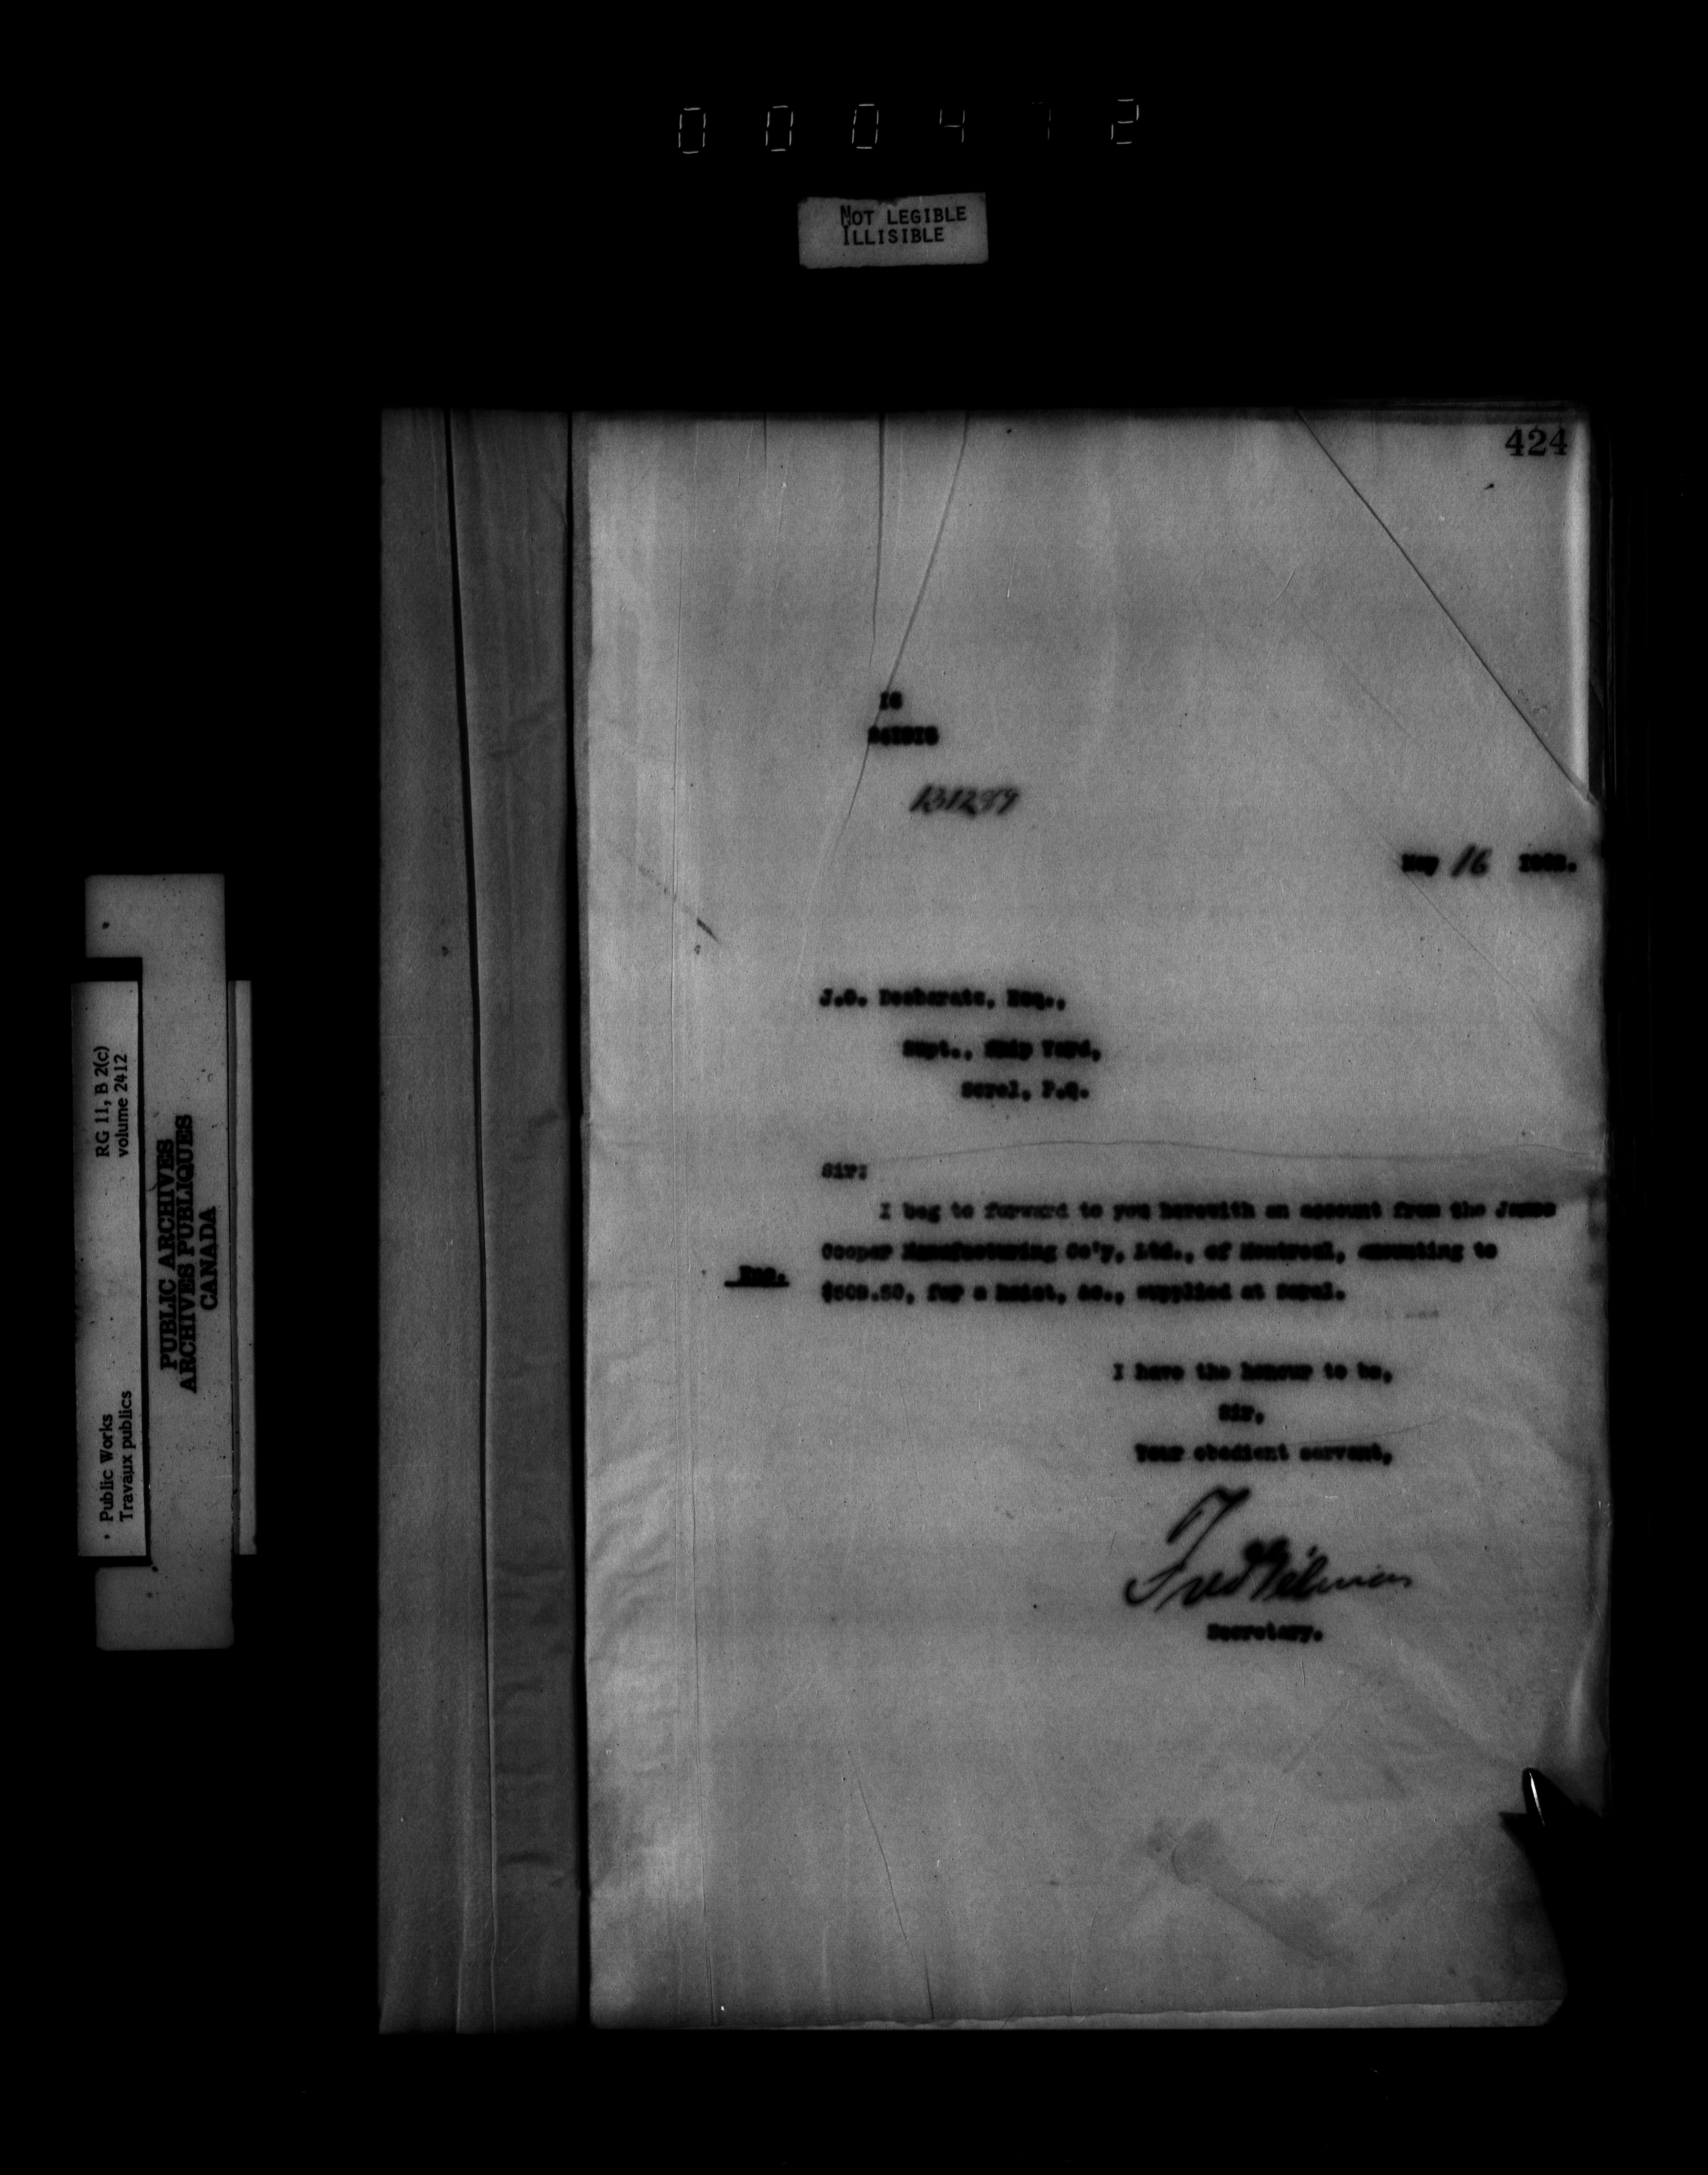 000472
NOT LEGIBLE
ILLISIBLE
424
16
131289
May 16
J.G. Desbarats, Esq.,
Supt., Ship Yard,
Sorel, P.Q.
Sir:
I beg to forward to you herewith an account from the James
Cooper Manufacturing Co'y, Ltd., of Montreal, amounting to
Enc.
$509.50, for a hoist, &c., supplied at Sorel.
I have the honour to be,
Sir,
Your obedient servant,
Fred Gélinas
Secretary.
RG 11, B 2(c)
volume 2412
• Public Works
Travaux publics
PUBLIC ARCHIVES
ARCHIVES PUBLIQUES
CANADA